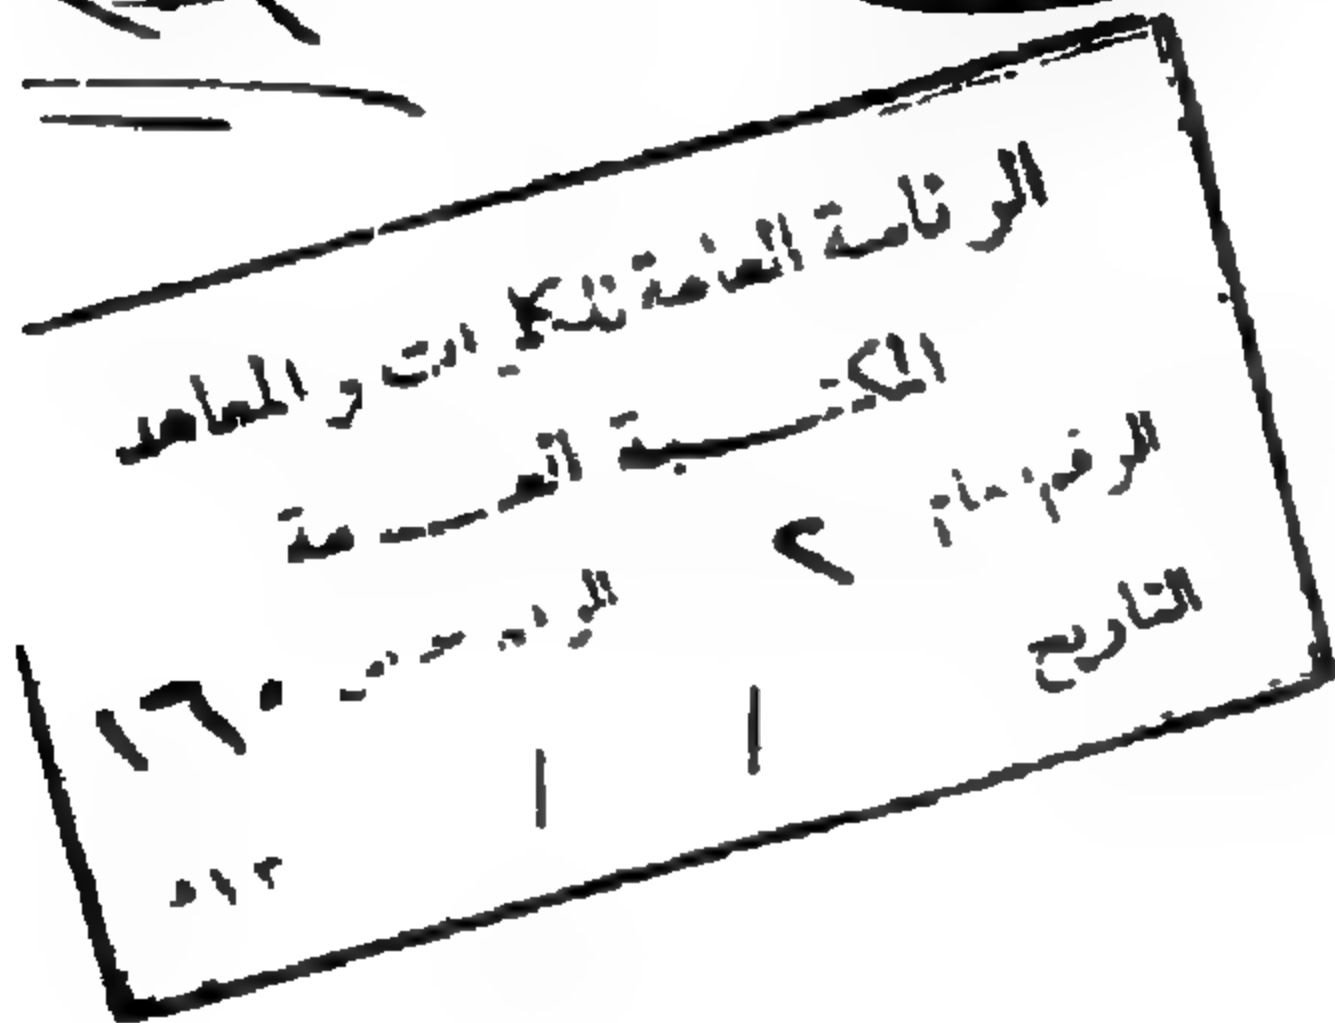 الرئاسة العامة للكليات والمعاهد
المكتبة العامة
الرقم العام ٢ الرقم الخاص ١٦٠
التاريخ / / ١٣ هـ